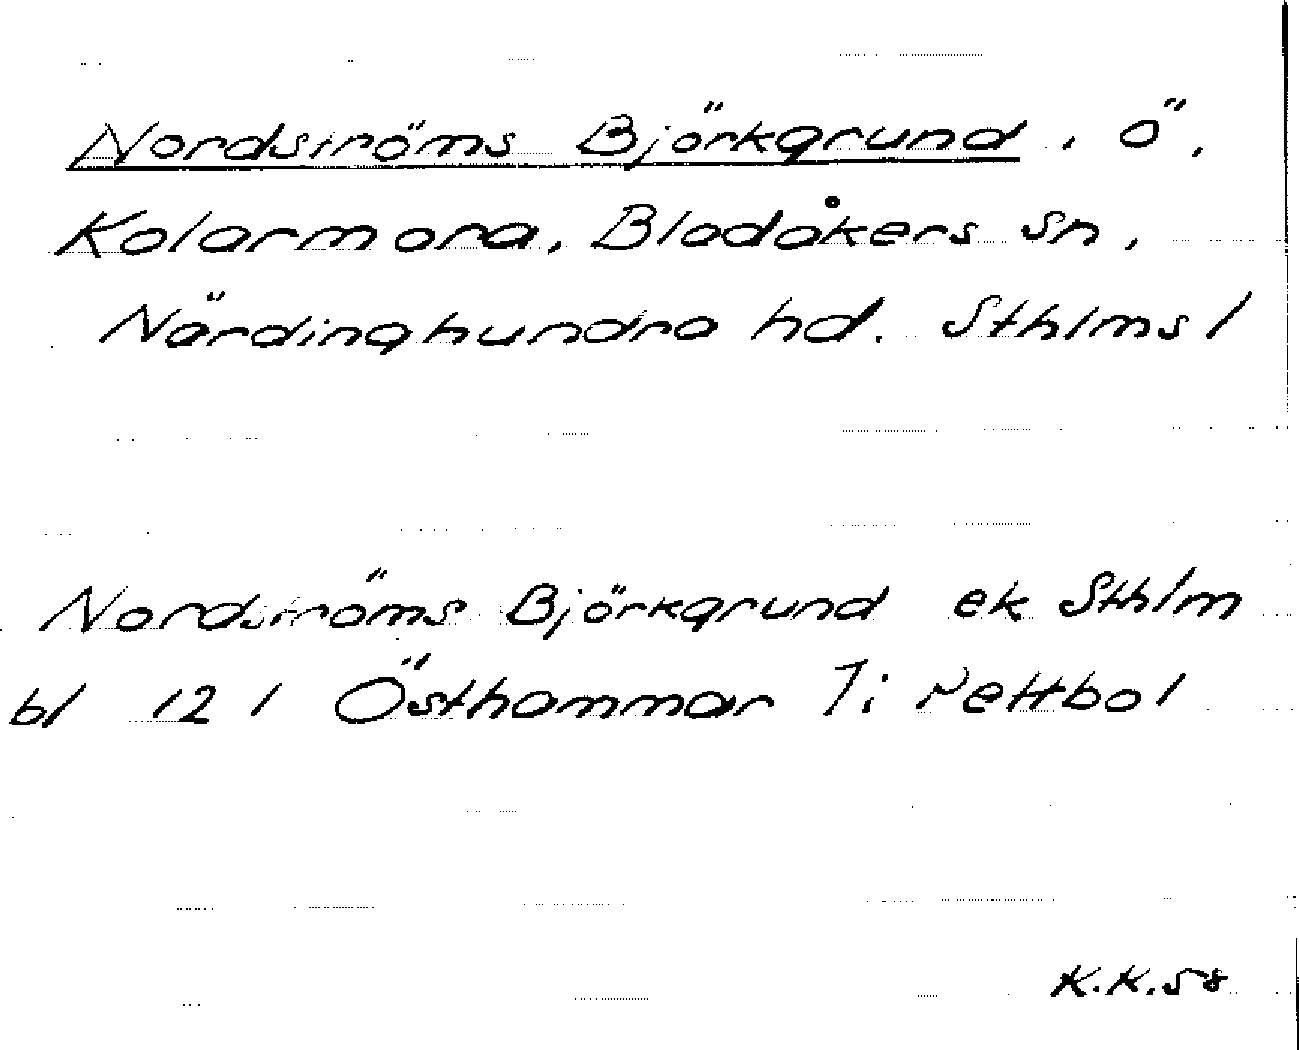 Nordströms Björkgrund, ö,
Kolarmora, Bladåkers sn,
Närdinghundra hd. Sthlms l
Nordströms Björkgrund ek Sthlm
bl 121 Östhammar 7i Rettbol
K.K.58